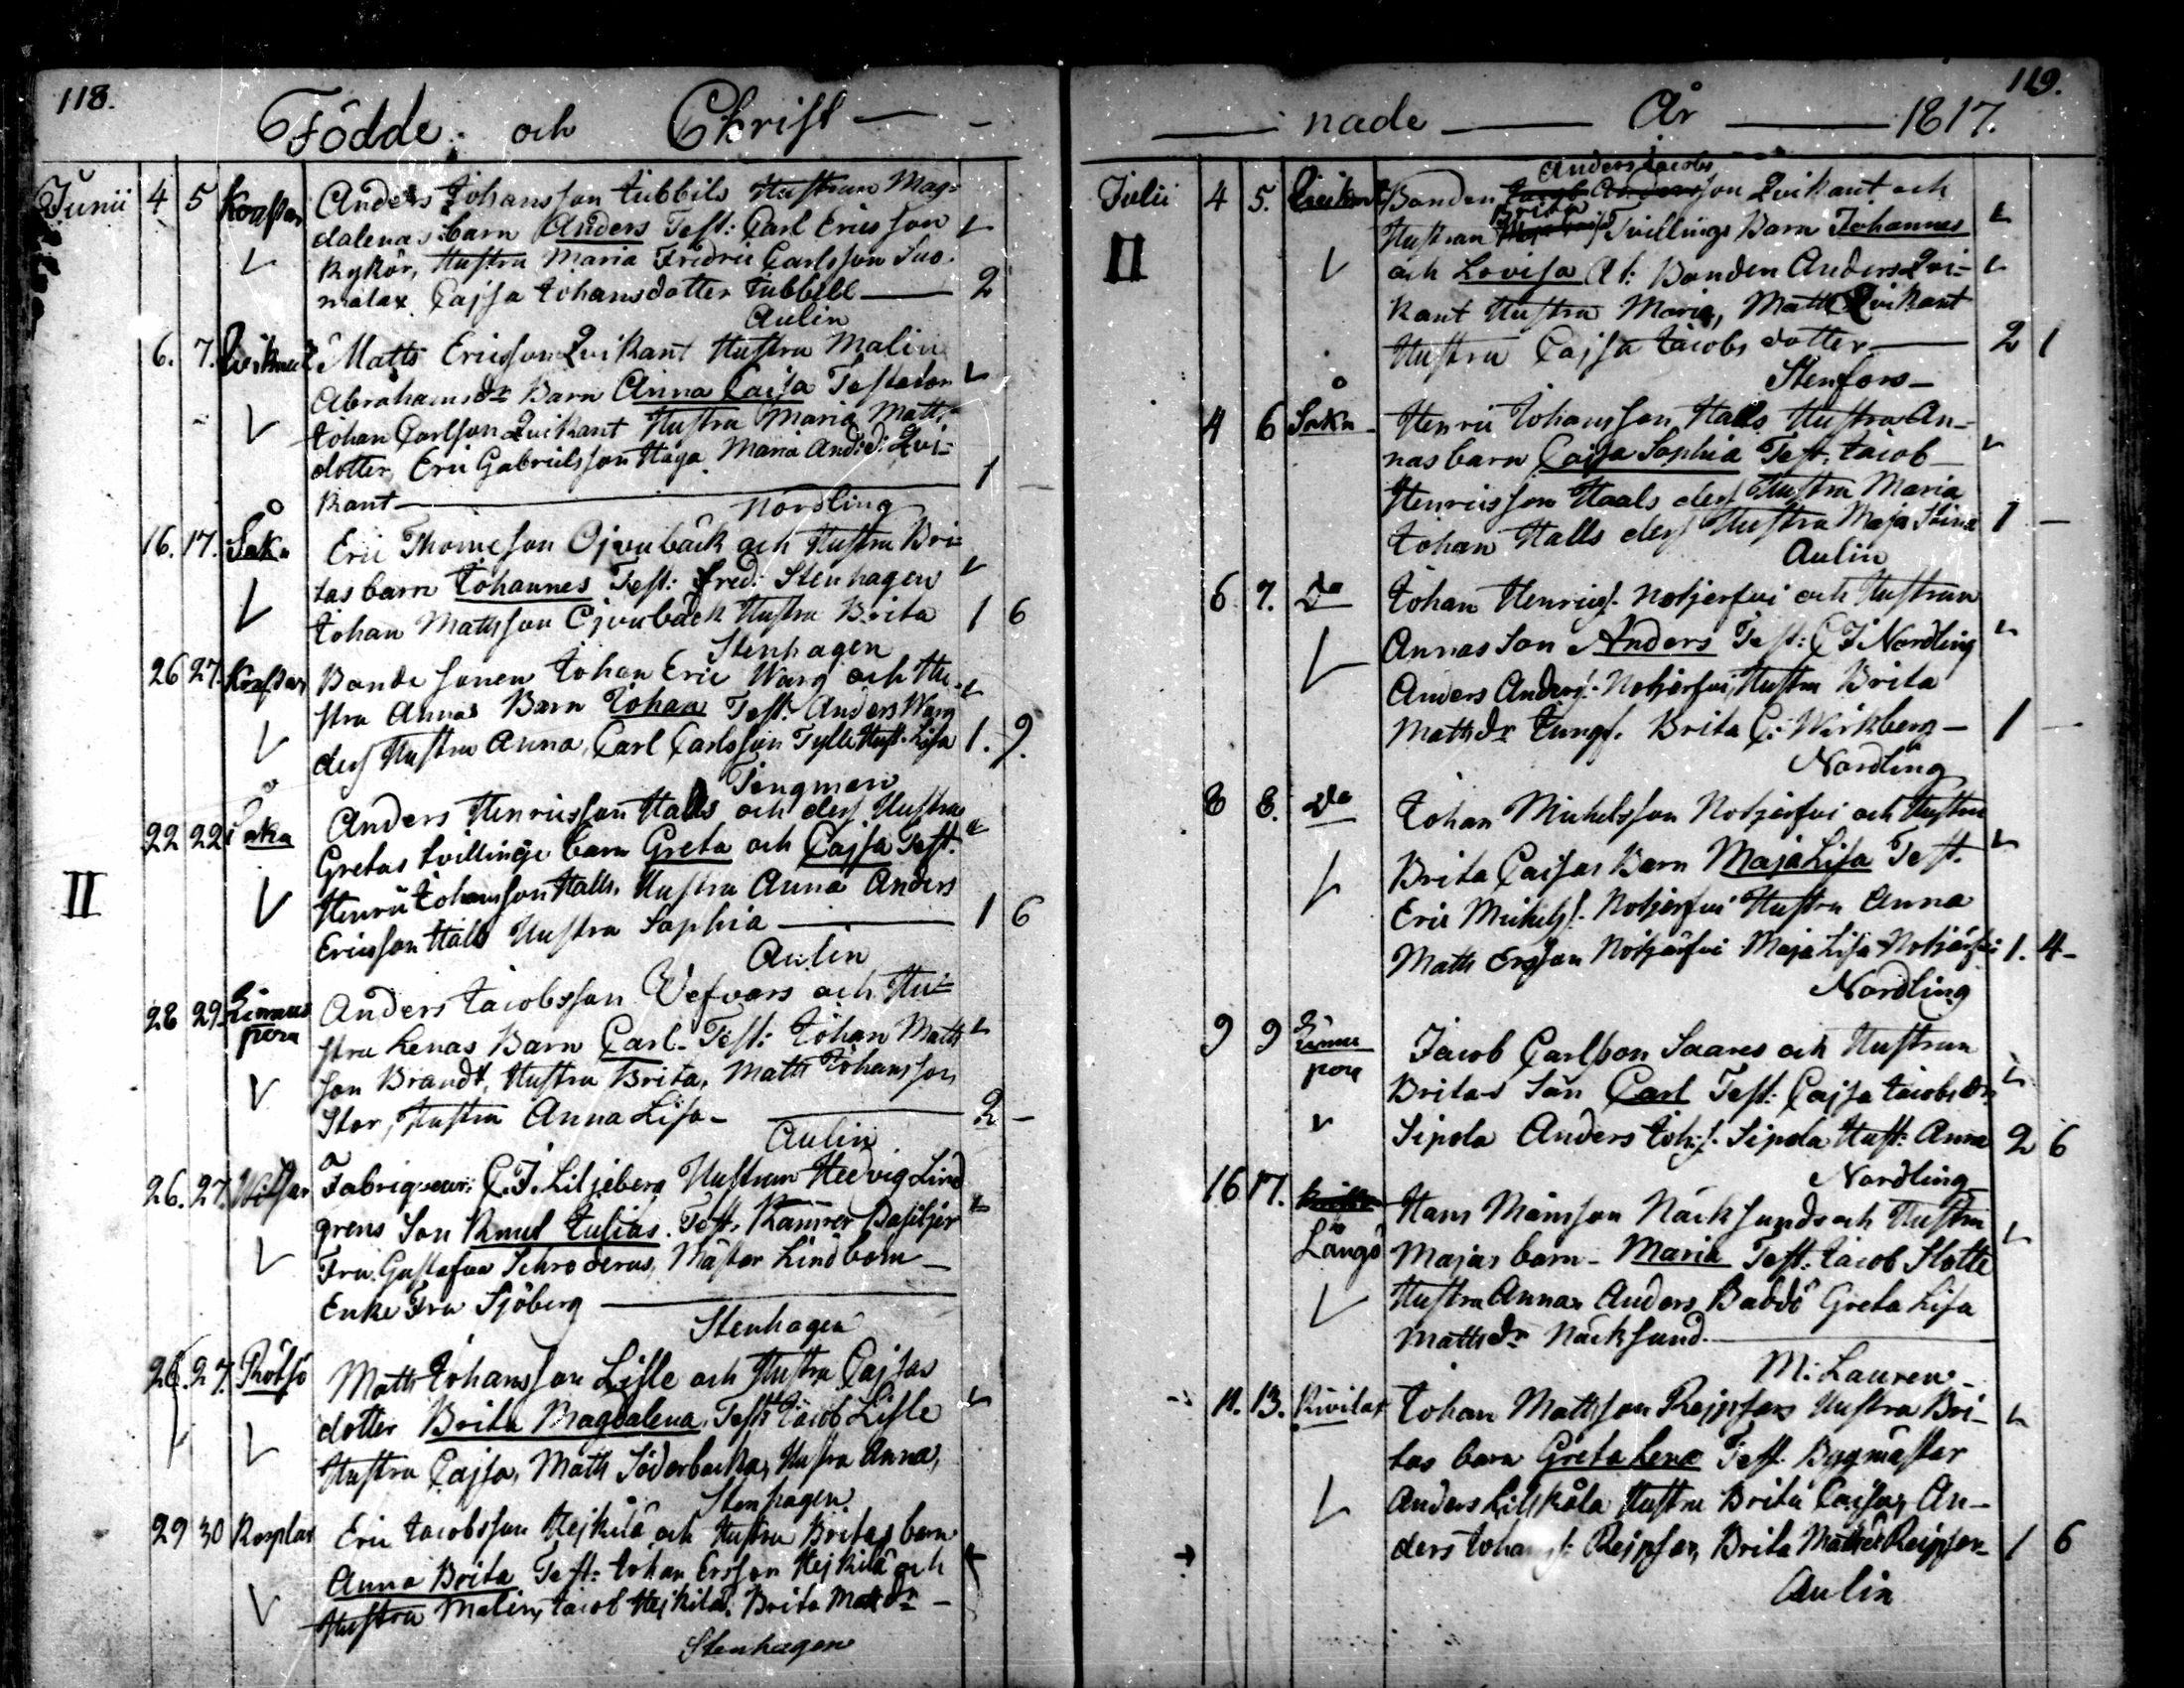 118.
Födde och Christ
Junii 4 5 Korplax Anders Johansson Jubbils Hustrun Mag-
dalenas barn Anders Test: Carl Ericsson
Hustru Maria Fredric Carlsson
malax, Cajsa Johansdotter Jubbill 2
Aulin
6. 7. Matts Ericsson Qvikant Hustru Malin
Abrahamsdr Barn Anna Caisa Testator
Johan Carlsson Qvikant Hustru Maria Matts
dotter, Eric Gabrielsson Haga Maria And:d: Qvi-
kant 1
Nordling
16. 17. Såka Eric Thomeson Öjvubäck och Hustru Bri
tas barn Johannes Test: Fred: Stenhagen
Johan Mattsson Öjvubäck Hustru Brita 1 6
Stenhagen
26 27. Bonde sonen Johan Eric Warg och Hu-
stru Annas Barn Johan Test: Anders Warg
dess Hustru Anna, Carl Carlsson Hust: Lisa 1. 9.
Tengman
22 22 Såka Anders Henricsson Halls och dess Hustru
Gretas tvillinge barn Greta och Cajsa Test.
II Henric Johansson Halls, Hustru Anna Anders
Ericsson Halls Hustru Sophia 1 6
Aulin
28 29. Anders Jacobsson Vefvars och Hu-
stru Lenas Barn Carl. Test: Johan Matts
son Brandt, Hustru Brita, Matts Johansson
Stor, Hustru Anna Lisa 2
Aulin
26. 27. Fabriqueur: C. J. Liljeberg Hustrun Hedvig Lind
grens Son Knut Julius. Test. Kamrer Basiljer
Fru Gustafva Schroderus, Mästar Lindbom
Enke Fru Sjöberg
Stenhagen
26. 27. Rötsö Matts Johansson Lisle och Hustru Cajsas
dotter Brita Magdalena. Test: Jacob Lisle
Hustru Cajsa, Matts Söderbacka, Hustru Anna,
Stenhagen.
29 30 Korplax Eric Jacobsson Hejkilä och Hustru Britas barn
Anna Brita Test: Johan Ersson Hejkilä och
Hustru Malin, Jacob Hejkilä, Brita Mattsdr
Stenhagen
119.
nade År 1817.
Julii 4 5. Bonden Anders Jacobs son Qvikant och
Hustrun Brita Tvillings Barn Johannes
II och Lovisa Bonden Anders Qvi-
kant Hustru Maria, Matts Qvikant
Hustru Cajsa Jacobs dotter 2 1
Stenfors
4 6 Såka Henric Johansson Halls Hustru An-
nas barn Cajsa Sophia Test. Jacob
Henricsson Haals dess Hustru Maria
Johan Halls dess Hustru Maja Stina 1
Aulin
6 7. Do Johan Henrics. Notjerfvi och Hustrun
Annas Son Anders Test: C J Nordling
Anders Anders: Notjerfvi, Hustru Brita
Mattsdr Jungf. Brita C: Wirkberg 1
Nordling
8 8. Do Johan Michelsson Notjerfvi och Hustru
Brita Caisas Barn Maja Lisa Test.
Eric Michelss. Notjerfvi Hustru Anna
Matts Ersson Notjerfvi Maja Lisa Notjerfvi 1. 4
Nordling
9 9 Jacob Carlson Saares och Hustrun
Britas Son Carl Test: Cajsa Jacobsdr
Sipola Anders Johs. Sipola Hust: Anna 2 6
Nordling
16 17. Långö Hans Mainson Näcksunds och Hustru
Majas barn Maria Test: Jacob Slotte
Hustru Anna Anders Baddö Greta Lisa
Mattsdr Näcksund.
M: Lauren
11. 13. Rivilax Johan Mattsson Reipsars Hustru Bri-
tas barn Greta Lena Test. Bygmästar
Anders Lillkåla Hustru Brita Caisa, An-
ders Johanss: Reipsar, Brita Mattsdr Reipsar 1 6
Aulin